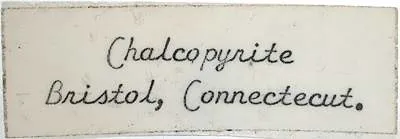 Chalcopyrite
Bristol, Connectecut.